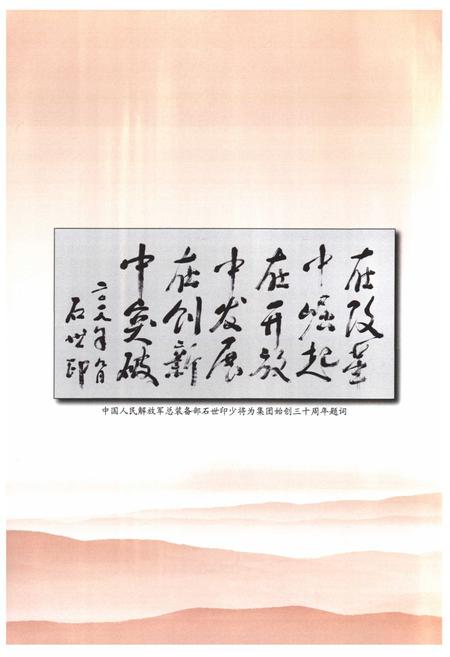 在改革
中崛起
在开放
中发展
在创新
中突破
二〇一九年九月
石世印
中国人民解放军总装备部石世印少将为集团始创三十周年题词